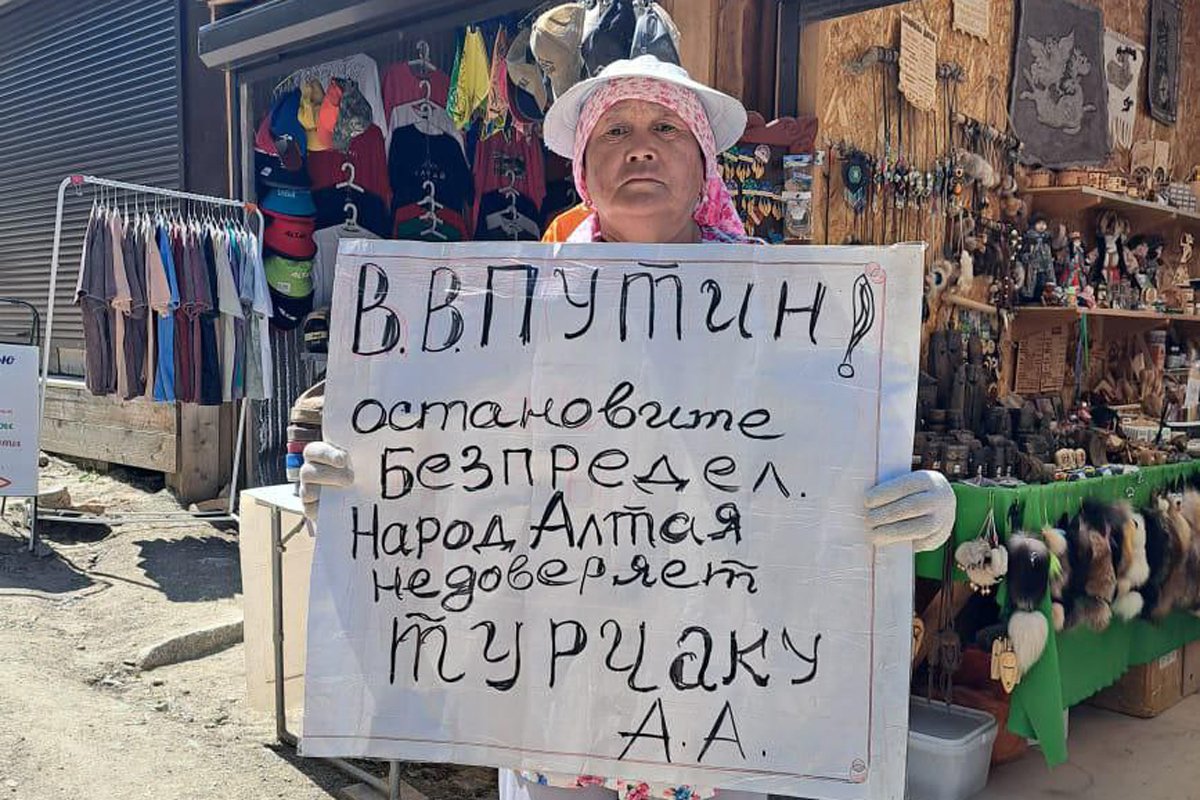 В.В.Путин!
остановите
Беспредел.
Народ Алтая
недоверяет
Турчаку
А.А.